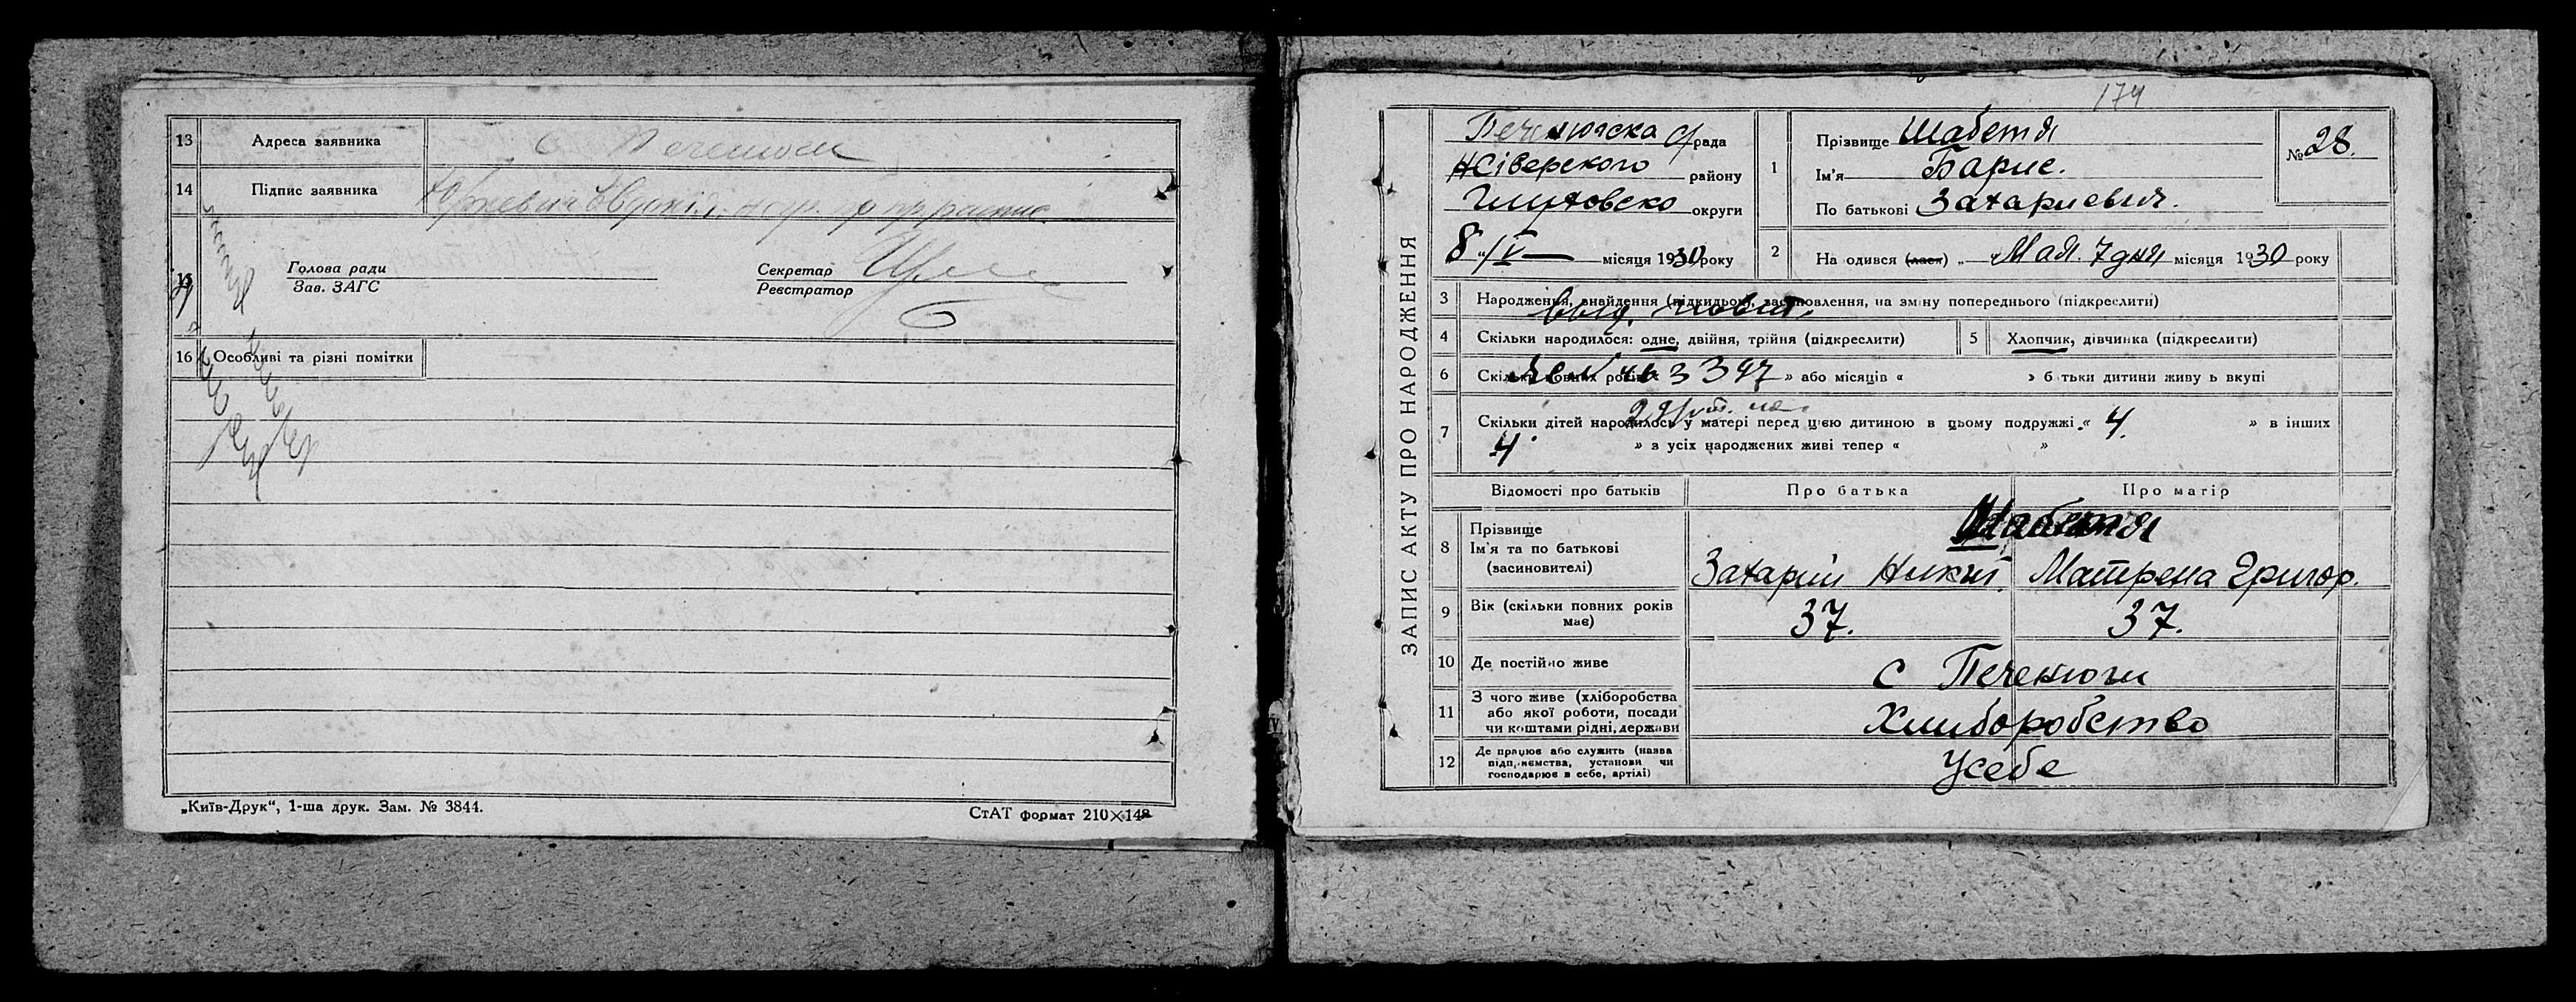 13 Адреса заявника с Печенюги
14 Підпис заявника
15
Голова ради
Зав. ЗАГС
Секретар
Реєстратор
16 Особливі та різні помітки
„Київ-Друк“, 1-ша друк. Зам. № 3844.
СтАТ формат 210×148
174
ЗАПИС АКТУ ПРО НАРОДЖЕННЯ
Печенюгска с/рада
НСіверского району
Глуховско округи
8 „/V місяця 1930 року
1 Прізвище Шабетя
Ім'я Барис.
По батькові Захариевич.
№ 28.
2 На одився (лася) „ Мая. 7 дня місяця 1930 року
3 Народження, знайдення (підкидьок), засновлення, на зміну попереднього (підкреслити)
выд. повт.
4 Скільки народилося: одне, двійня, трійня (підкреслити)
5 Хлопчик, дівчинка (підкреслити)
6 Скільки повних років « » або місяців « » б тьки дитини живу ь вкупі
7 Скільки дітей народилось у матері перед цією дитиною в цьому подружжі « 4. » в інших
4 » з усіх народжених живі тепер « »
Відомості про батьків Про батька Про матір
8 Прізвище
Ім'я та по батькові
(засиновителі)
Шабетя
Захарий Никит. Матрена Григор.
9 Вік (скільки повних років
має)
37. 37.
10 Де постійно живе с Печенюги
11 З чого живе (хліборобства
або якої роботи, посади
чи коштами рідні, держави
Хлиборобство
12 Де працює або служить (назва
підп,иємства, установи чи
господарює в себе, артілі)
Усебе